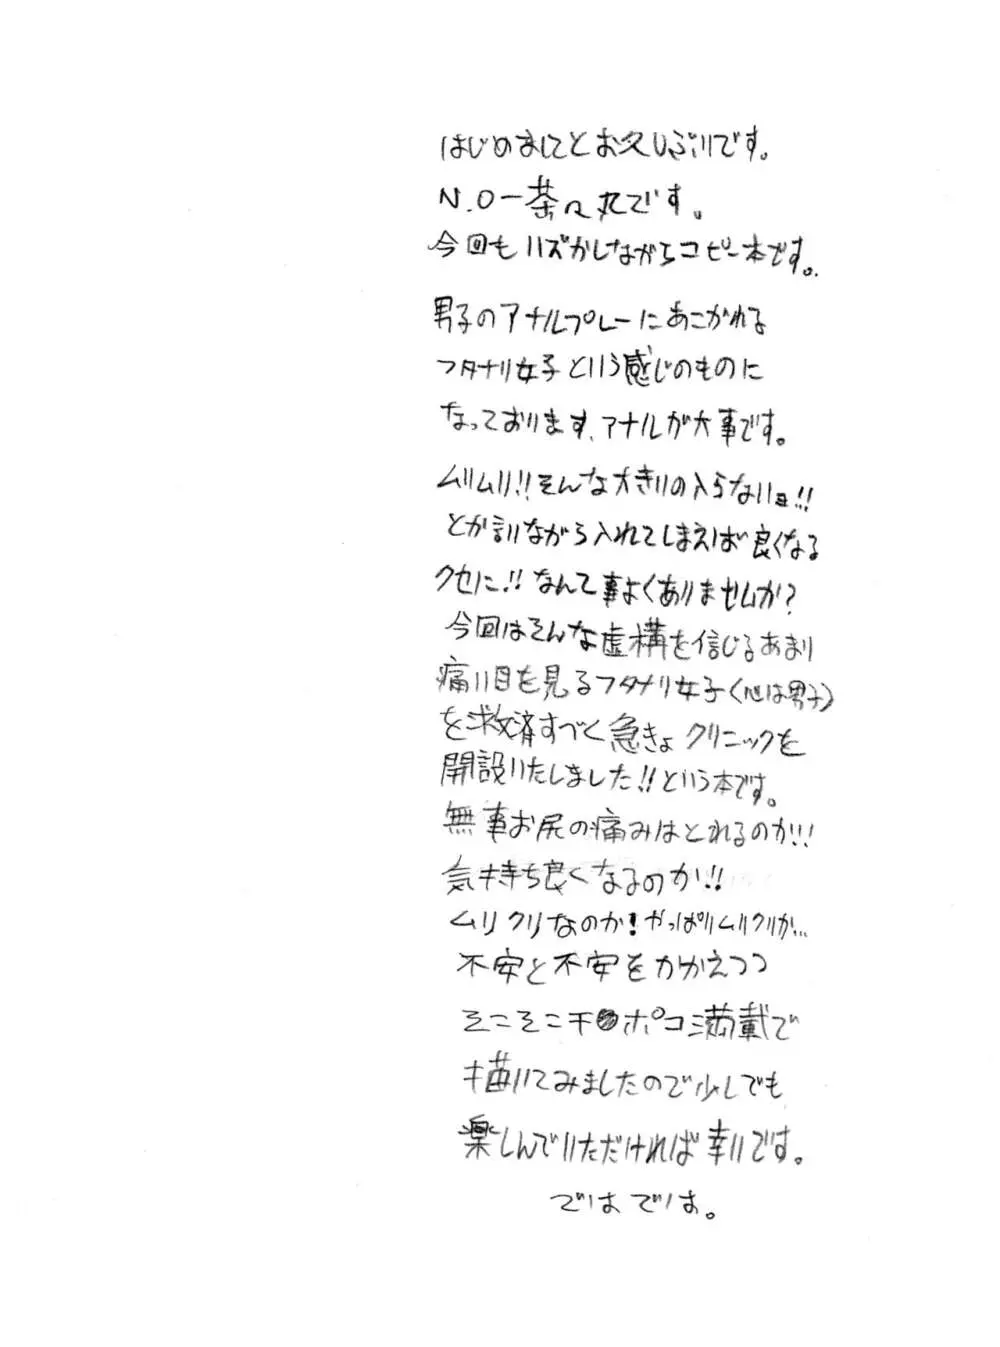 はじめましてとお久しぶりです。
N.O-茶々丸です。
今回もハズかしながらコピー本です。
男子のアナルプレーにあこがれる
フタナリ女子という感じのものに
なっております、アナルが大事です。
ムリムリ!!そんな大きいの入らないヨ!!
とか言いながら入れてしまえば良くなる
クセに!!なんて事よくありませんか?
今回はそんな虚構を信じるあまり
痛い目を見るフタナリ女子(心は男子)
を救済すべく急きょクリニックを
開設いたしました!!という本です。
無事お尻の痛みはとれるのか!!!
気持ち良くなるのか!!
ムリクリなのか!やっぱりムリクリか…
不安と不安をかかえつつ
そこそこチ●ポコ満載で
描いてみましたので少しでも
楽しんでいただければ幸いです。
ではでは。